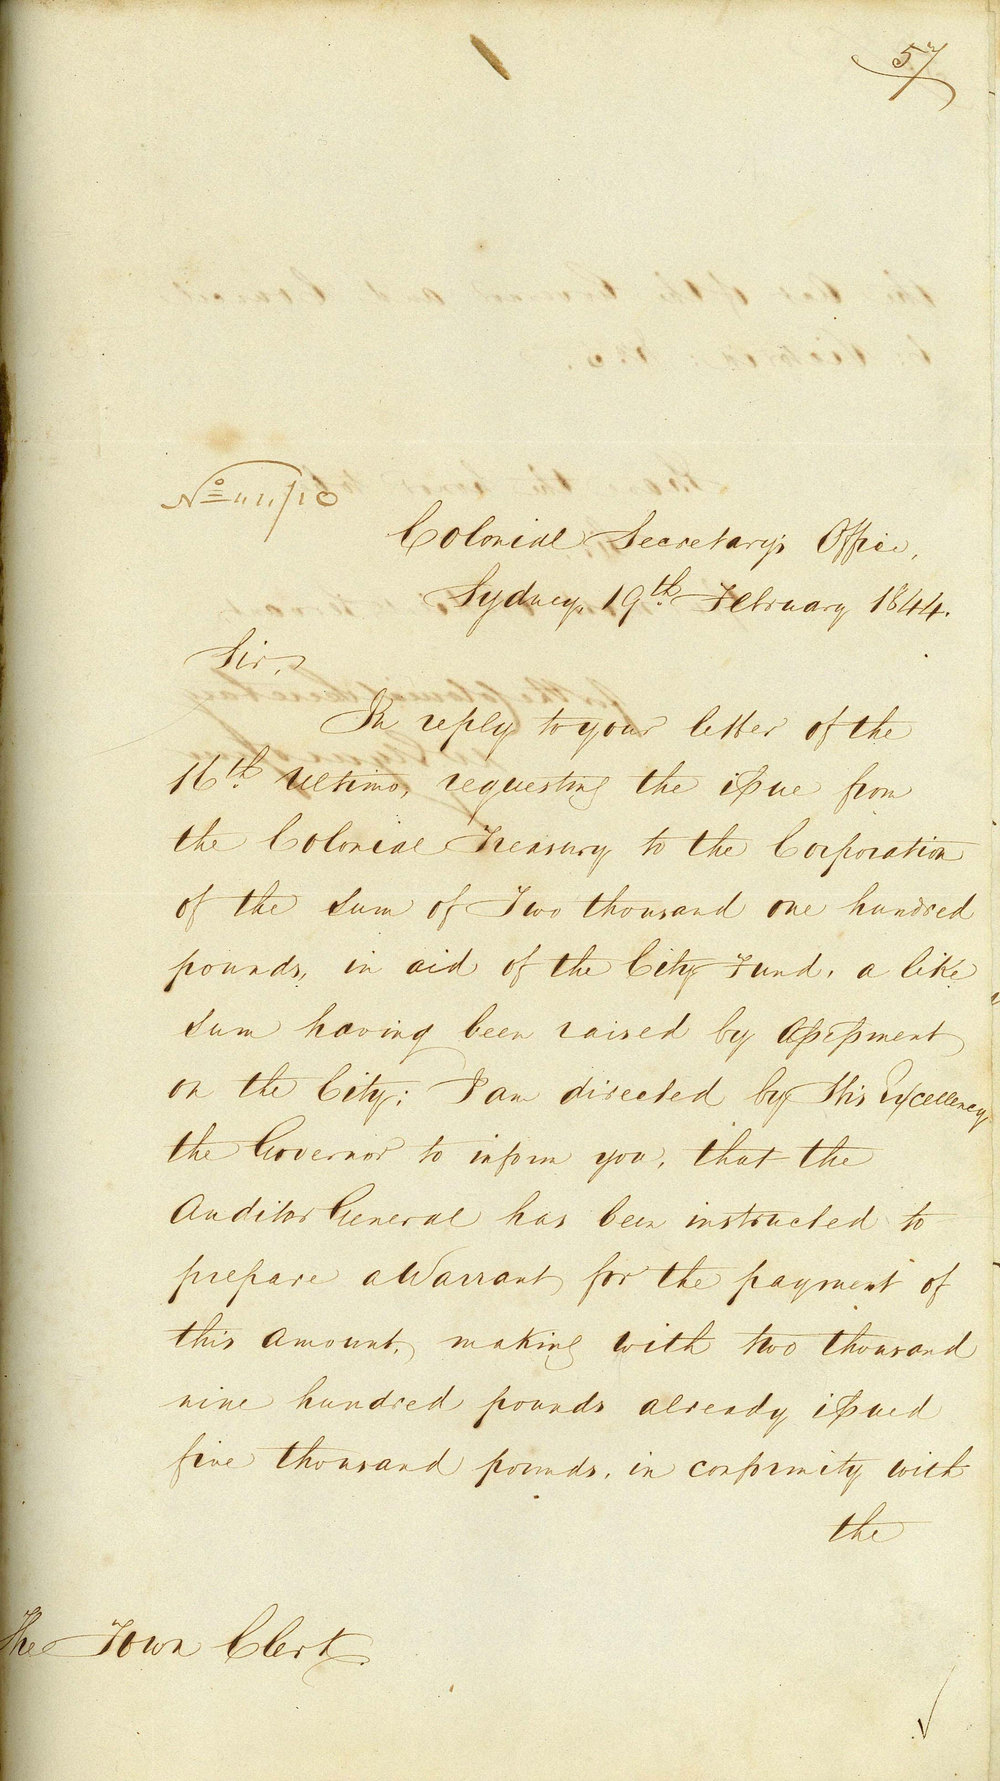 57
No 44/10
Colonial Secretary's Office,
Sydney, 19th February 1844.
Sir,
In reply to your letter of the
16th Ultimo, requesting the issue from
the Colonial Treasury to the Corporation
of the sum of Two thousand one hundred
pounds, in aid of the City Fund, a like
sum having been raised by assessment
on the City; I am directed by His Excellency
the Governor to inform you, that the
Auditor General has been instructed to
prepare a Warrant for the payment of
this amount, making with two thousand
nine hundred pounds already issued
five thousand pounds, in conformity with
the
The Town Clerk.